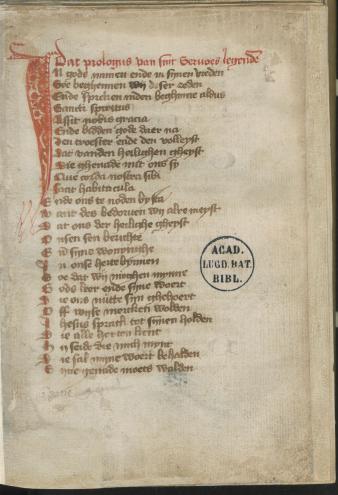 Dat prologus van sint Servoes legende
In gods namen ende in sijnen vreden
Soe beghennen wij deser reden
Ende spreken inden beghinne aldus
Sancti spiritus
Assit nobis gracia
Ende bidden gode daer na
Den troester ende den volleyst
Dat vanden heilighen gheyst
Die ghenade met ons sy
Que corda nostra sibi
Faciat habitacula
Ende ons te noden by sta
Want des bedorven wij alre meyst
Dat ons der heilighe gheyst
Onsen sen berichte
End sijne woenynghe
In onse herte bynnen
Soe dat wij moeghen mynnen
Gods leer ende sijne woert
Die ons nutte sijn ghehoert
Off wijse mercken wolden
Jhesus sprack tot sijnen holden
Die alle herten kent
Hy seide die mich mynt
Die sal mijne woert behalden
Ende ghenade moets walden
ACAD.
LUGD. BAT.
BIBL.